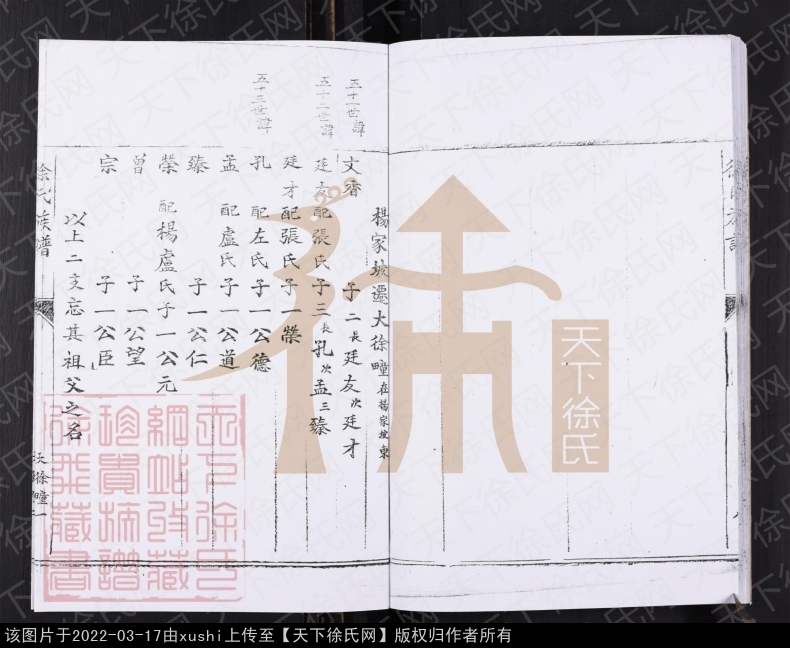 楊家坡遷大徐疃在楊家坡東
五十一世諱
文香 子二長廷友次廷才
五十二世諱
廷友配張氏子三長孔次孟三臻
廷才配張氏子一榮
五十三世諱
孔 配左氏子一公德
孟 配盧氏子一公道
臻 子一公仁
榮 配楊盧氏子一公元
曾 子一公望
宗 子一公臣
以上二支忘其祖父之名
徐氏族譜
大徐疃一
天下徐氏
天下徐氏网
该图片于2022-03-17由xushi上传至【天下徐氏网】版权归作者所有